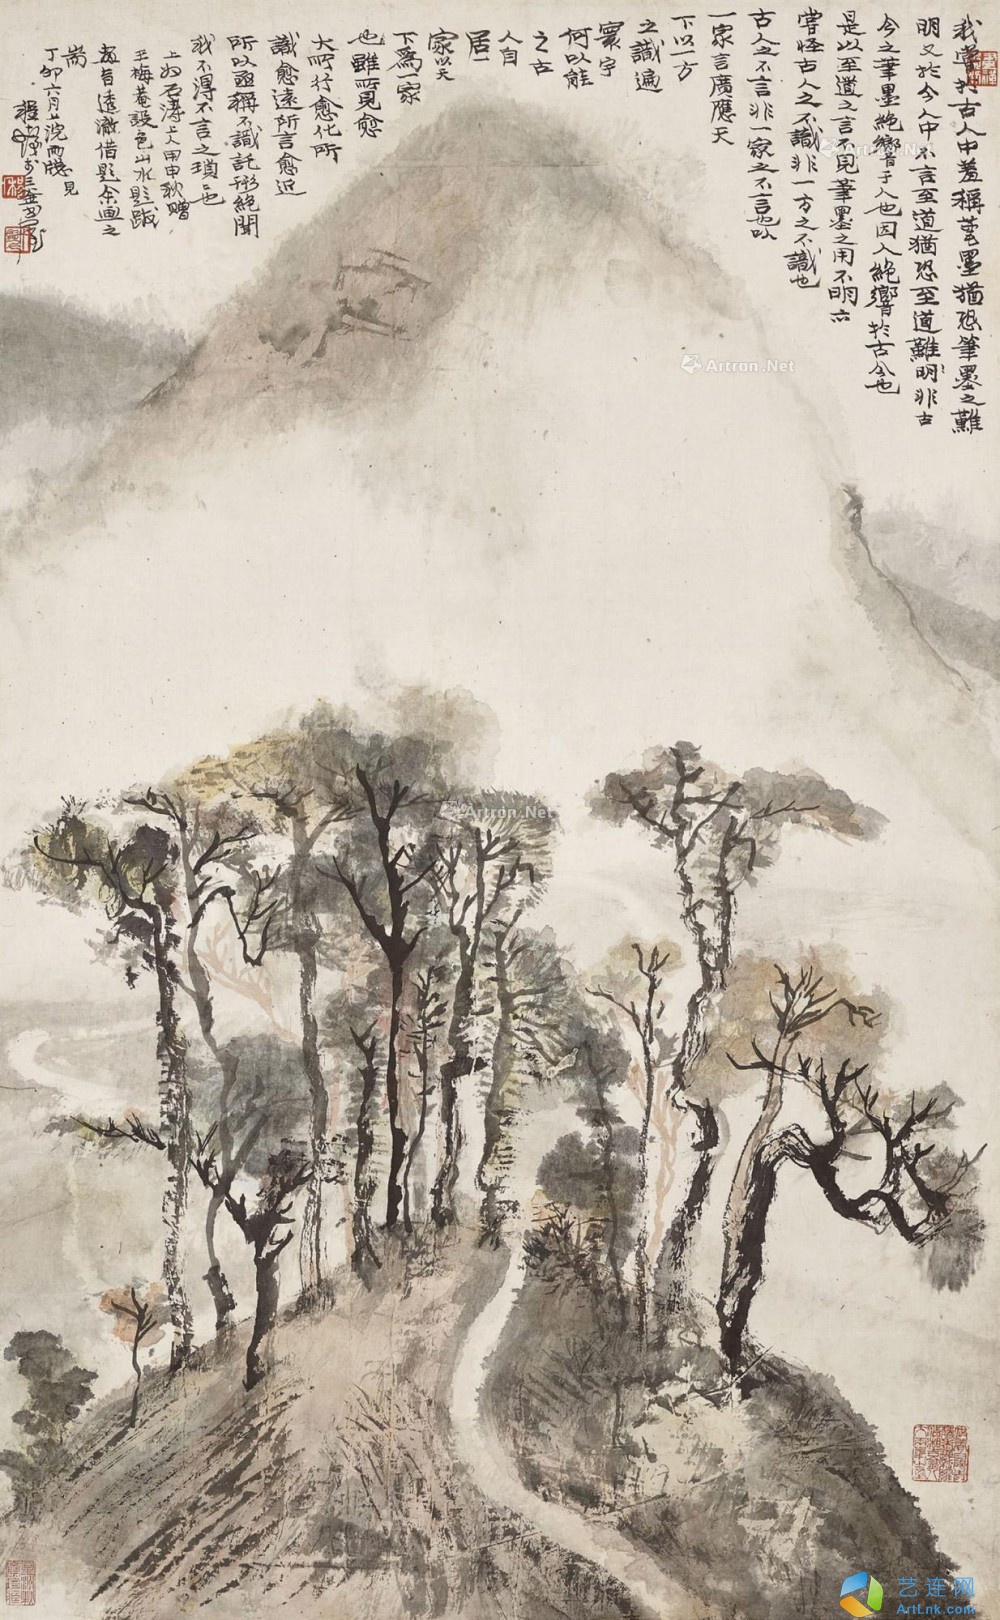 我輩於古人中羞稱藝墨猶恐筆墨之難
明又於今人中不言至道猶恐至道難明非古
今之筆墨絕響于人也因人絕響於古今也
是以至道之言不見筆墨之用不明六
嘗怪古人之不識非一方之不識也
古人之不言非一家之不言也以
一家言廣應天
下以一方
之識遍
寰宇
何以能
之古
人自
居一
家以天
下為一家
也雖所見愈
大所行愈化所
識愈遠所言愈近
所以亟稱不識託形絕聞
我不得不言之瑣瑣也
上為石濤上人甲申秋贈
王梅菴設色山水題跋
趣旨透澈借題余画之
耑
丁卯六月上浣雨牕見
Artron.Net
Artron.Net
艺连网
ArtLnk.com